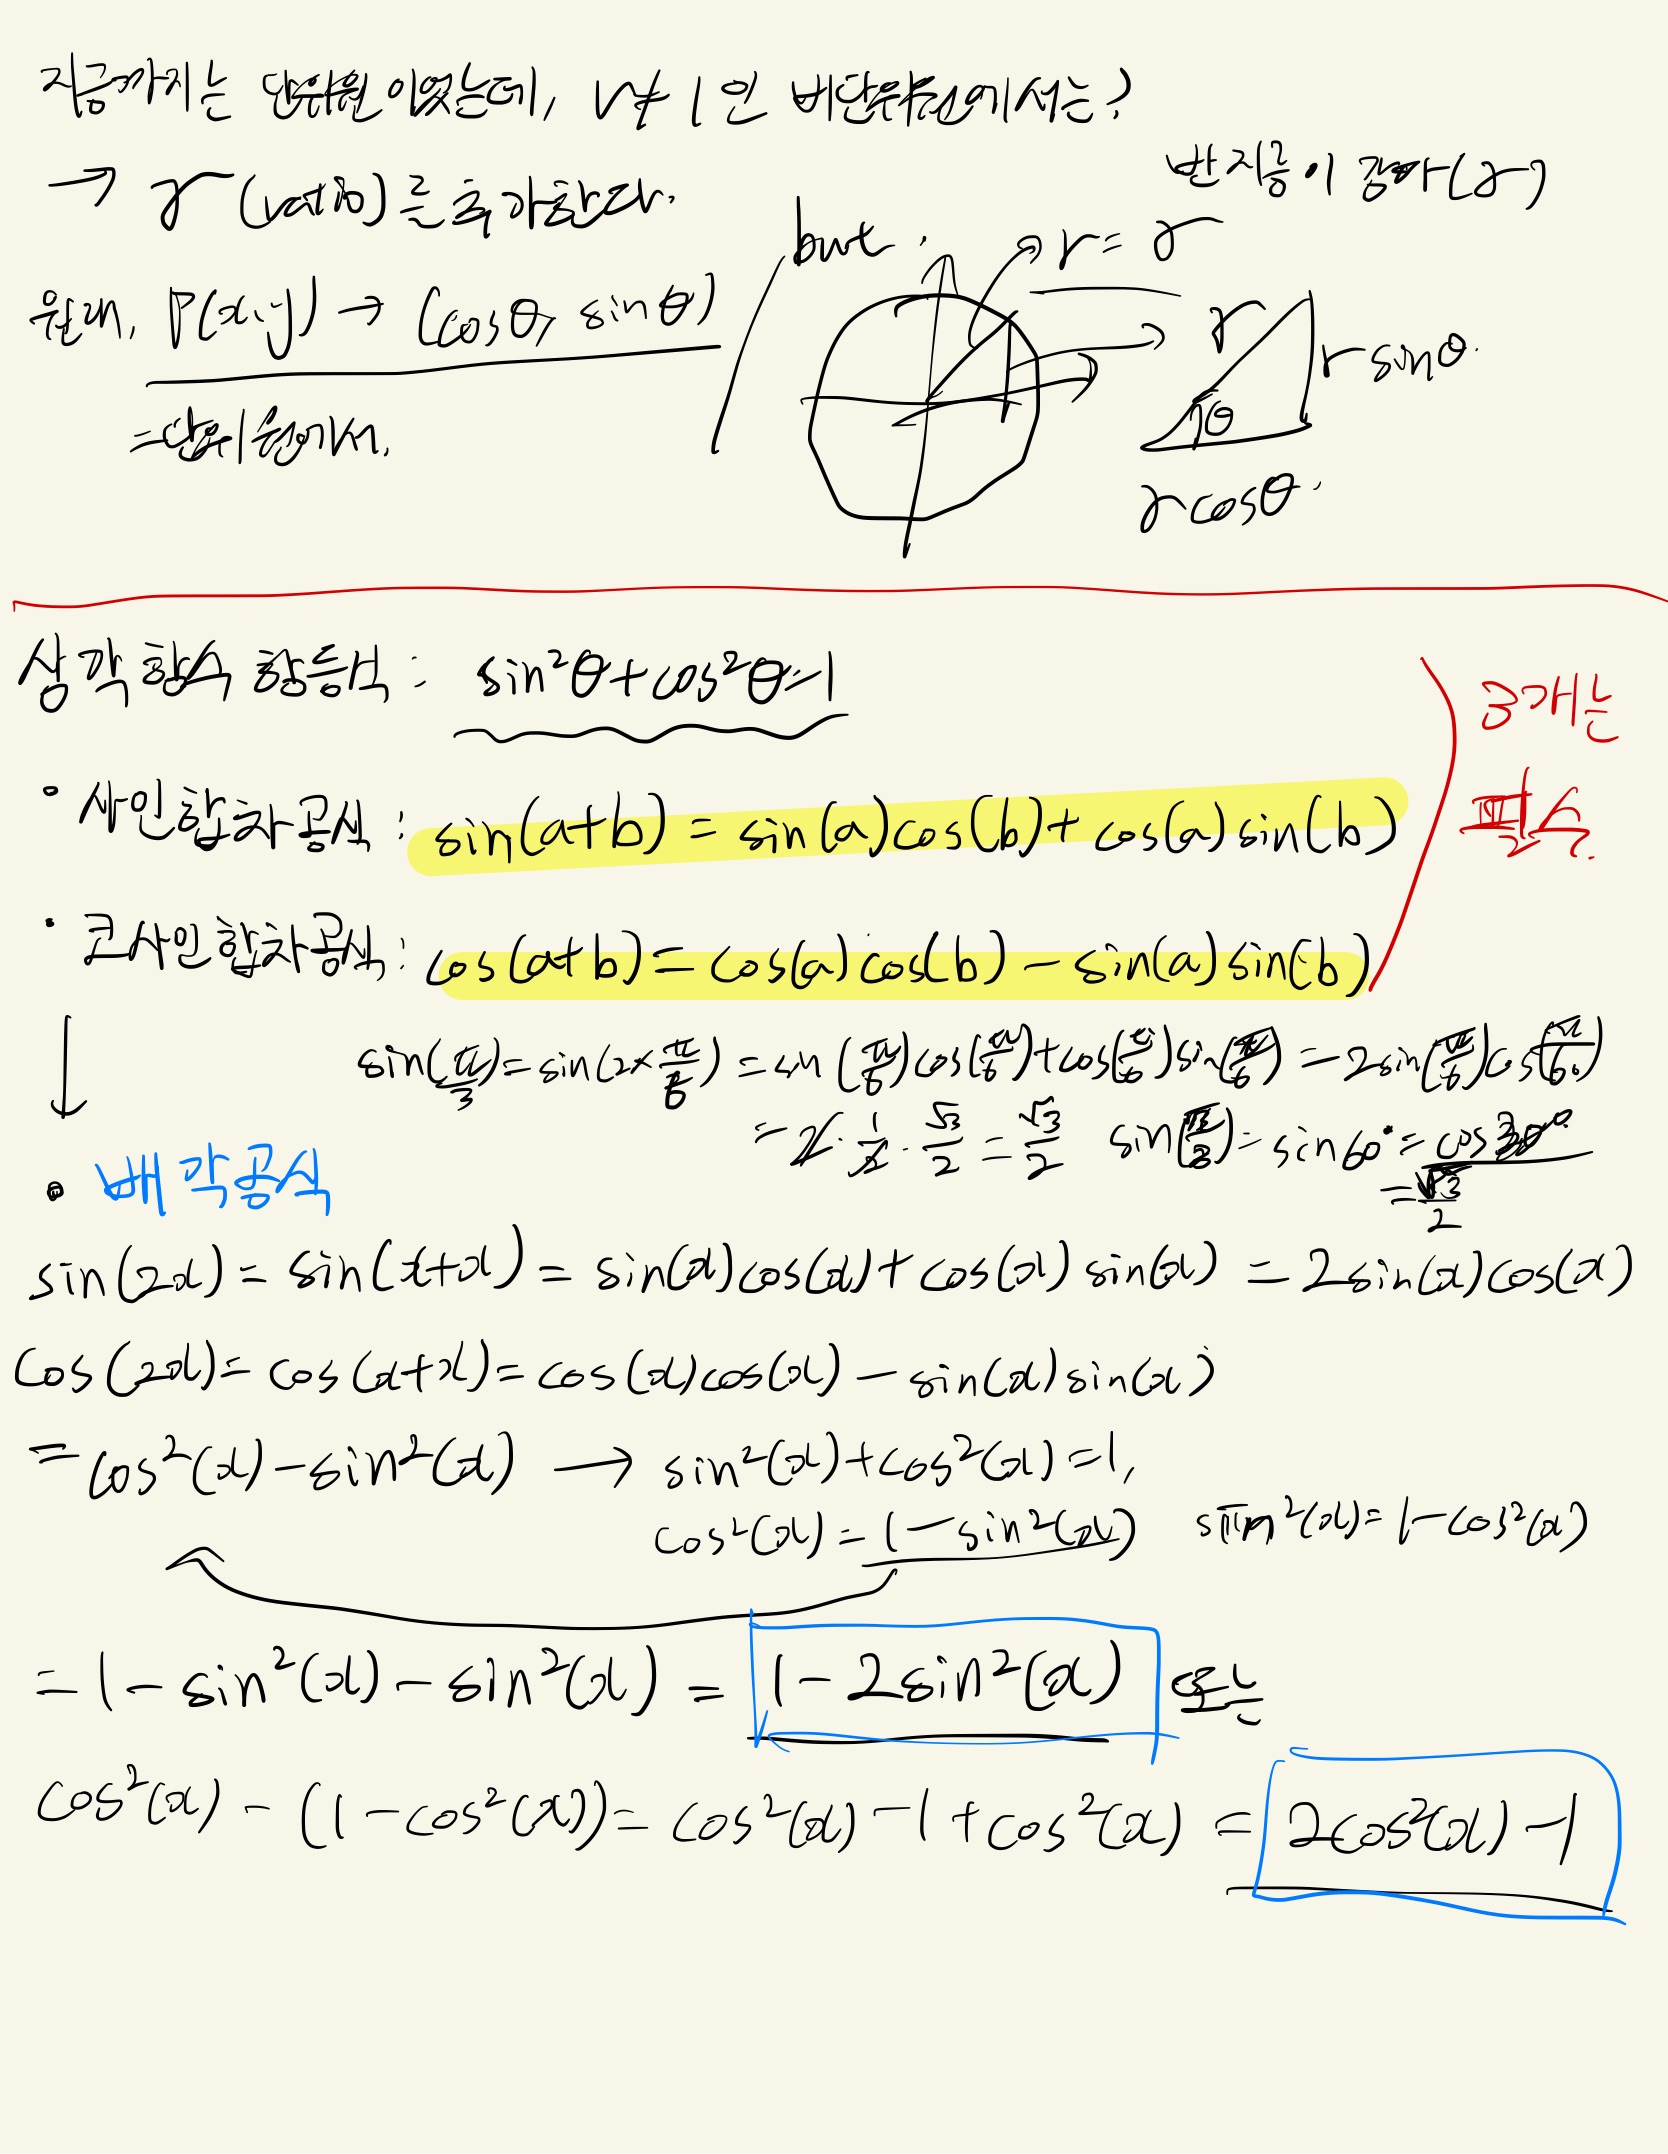 지금까지는 단위원이었는데, r≠1인 비단위원에서는?
→ r (ratio)를 추가한다.
반지름이 감마(r)
원래, P(x,y) → (cosθ, sinθ)
=단위원에서.
but.
r = r
r
r sinθ.
θ
r cosθ.
삼각함수 항등식 : sin²θ+cos²θ=1
• 사인합차공식 : sin(a+b) = sin(a)cos(b)+ cos(a)sin(b)
• 코사인합차공식 : cos(a+b)=cos(a)cos(b) - sin(a)sin(b)
3개는
필수.
↓
sin(π/3)=sin(2×π/6) =sin(π/6)cos(π/6)+cos(π/6)sin(π/6) =2sin(π/6)cos(π/6)
=2·1/2·√3/2=√3/2 sin(π/3)=sin60°=cos30°
=√3/2
• 배각공식
sin(2x) = sin(x+x) = sin(x)cos(x)+cos(x) sin(x) =2sin(x)cos(x)
cos(2x)=cos(x+x)=cos(x)cos(x) -sin(x)sin(x)
=cos²(x)-sin²(x) → sin²(x)+cos²(x)=1,
cos²(x)=1-sin²(x) sin²(x)=1-cos²(x)
=1-sin²(x)-sin²(x) = 1-2sin²(x) 또는
cos²(x) - (1-cos²(x))= cos²(x)-1+cos²(x) = 2cos²(x)-1